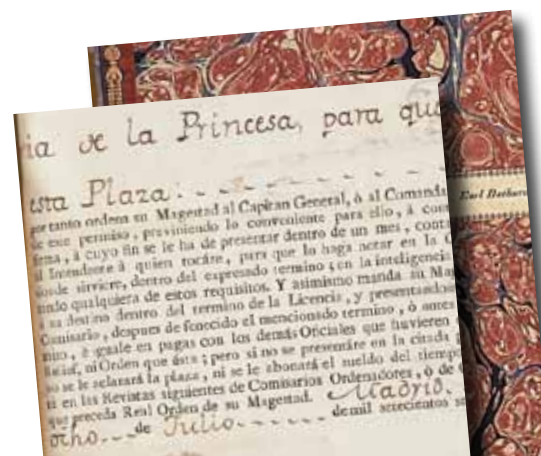 ia de la Princesa, para que
esta Plaza:
por tanto ordena su Magestad al Capitan General, ò al Comanda
de este permiso, previniendo lo conveniente para ello, à cuyo
firma, à cuyo fin se le ha de presentar dentro de un mes, conta
al Intendente à quien tocáre, para que lo haga notar en la C
donde sirviere, dentro del expresado termino; en la inteligencia
ando qualquiera de estos requisitos. Y asimismo manda su Mag
à su destino dentro del termino de la Licencia, y presentandose
Comisario, despues de fenecido el mencionado termino, ò antes
mino, è iguale en pagas con los demás Oficiales que huvieren
Relief, ni Orden que ésta; pero si no se presentáre en la citada
no se le aclarará la plaza, ni se le abonará el sueldo del tiempo
ti en las Revistas siguientes de Comisarios Ordenadores, ò de
que preceda Real Orden de su Magestad. Madrid.
ocho de Julio demil setecientos se
Earl Bathurs